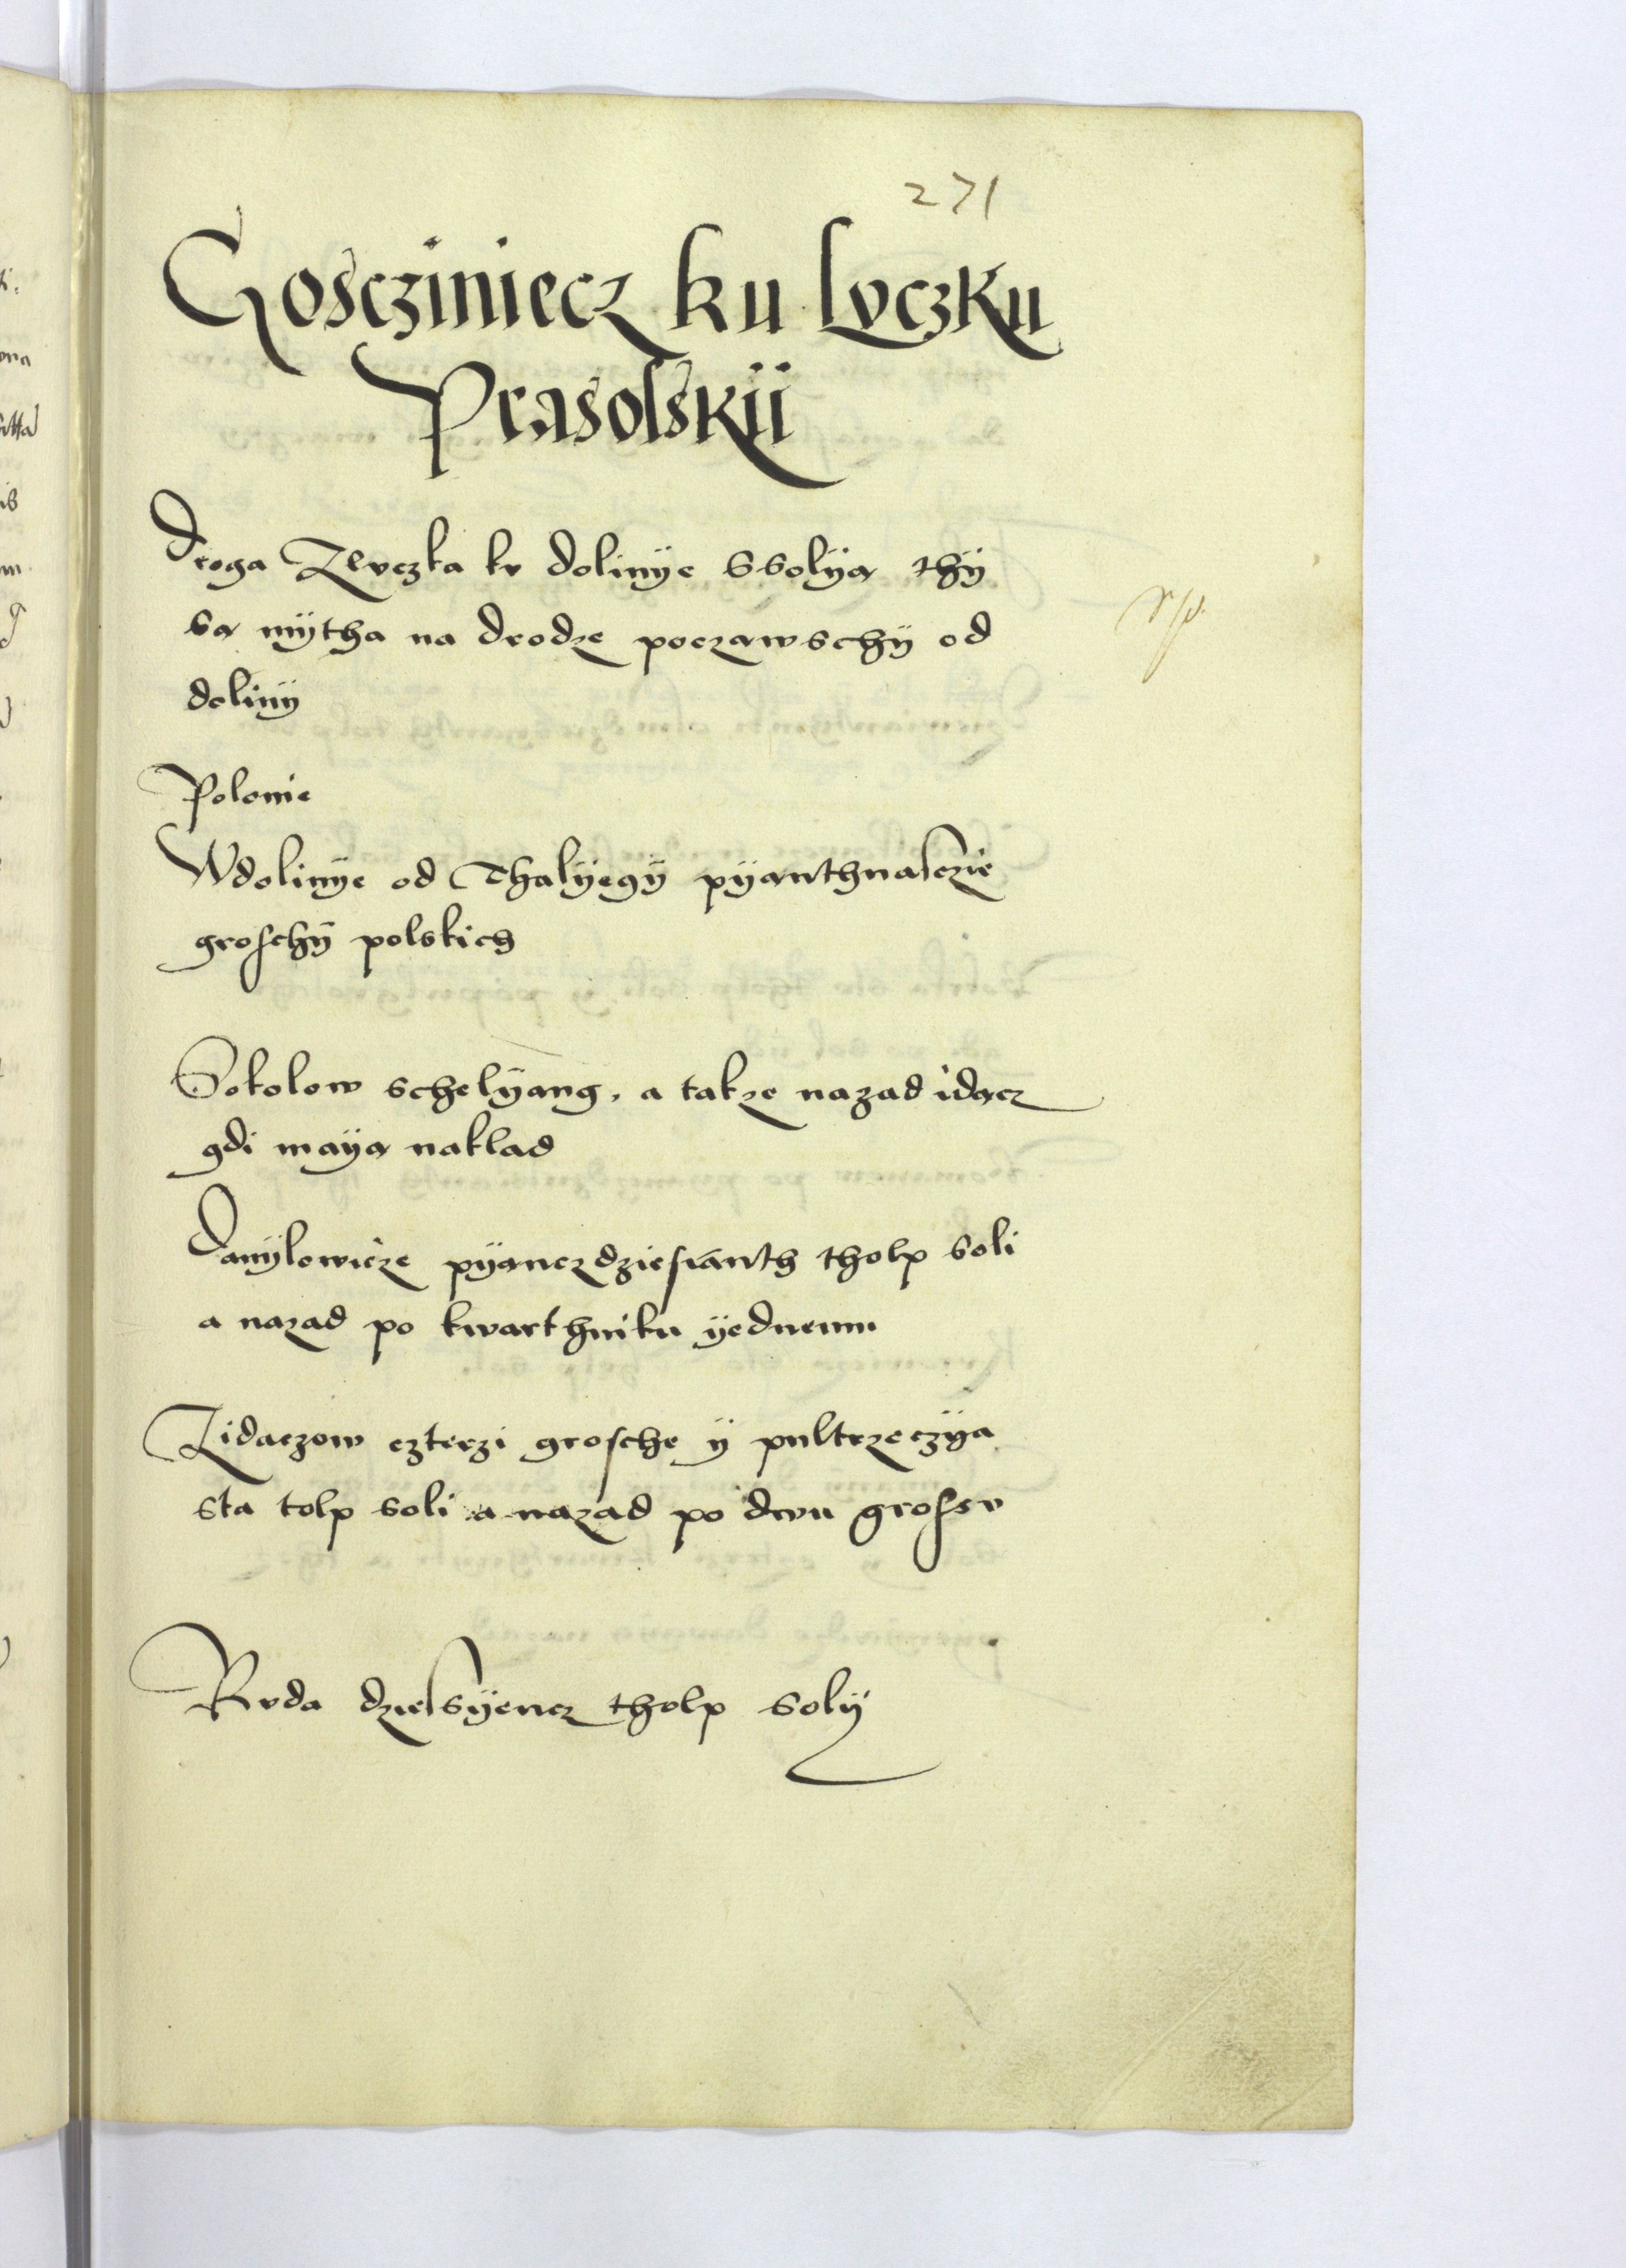 271
Goscziniecz ku Lvczku
Prasolskii
Droga Zlvczka kv dolinÿe ssolÿa thÿ
sa mÿtha na drodze poczawschÿ od
dolinÿ
Polonie
Wdolinÿe od Thalÿegÿ pÿanthnasczie
groschÿ polskich
Sokolow schelÿang, a takze nazad idacz
gdi maÿa naklad
Danÿlowicze pÿanczdziesianth tholp soli
a nazad po kwarthniku ÿednemu
Zidaczow czterzi grosche ÿ pultrzeczÿa
sta tolp soli a nazad po dwu grossv
Rvda dziesÿencz tholp solÿ